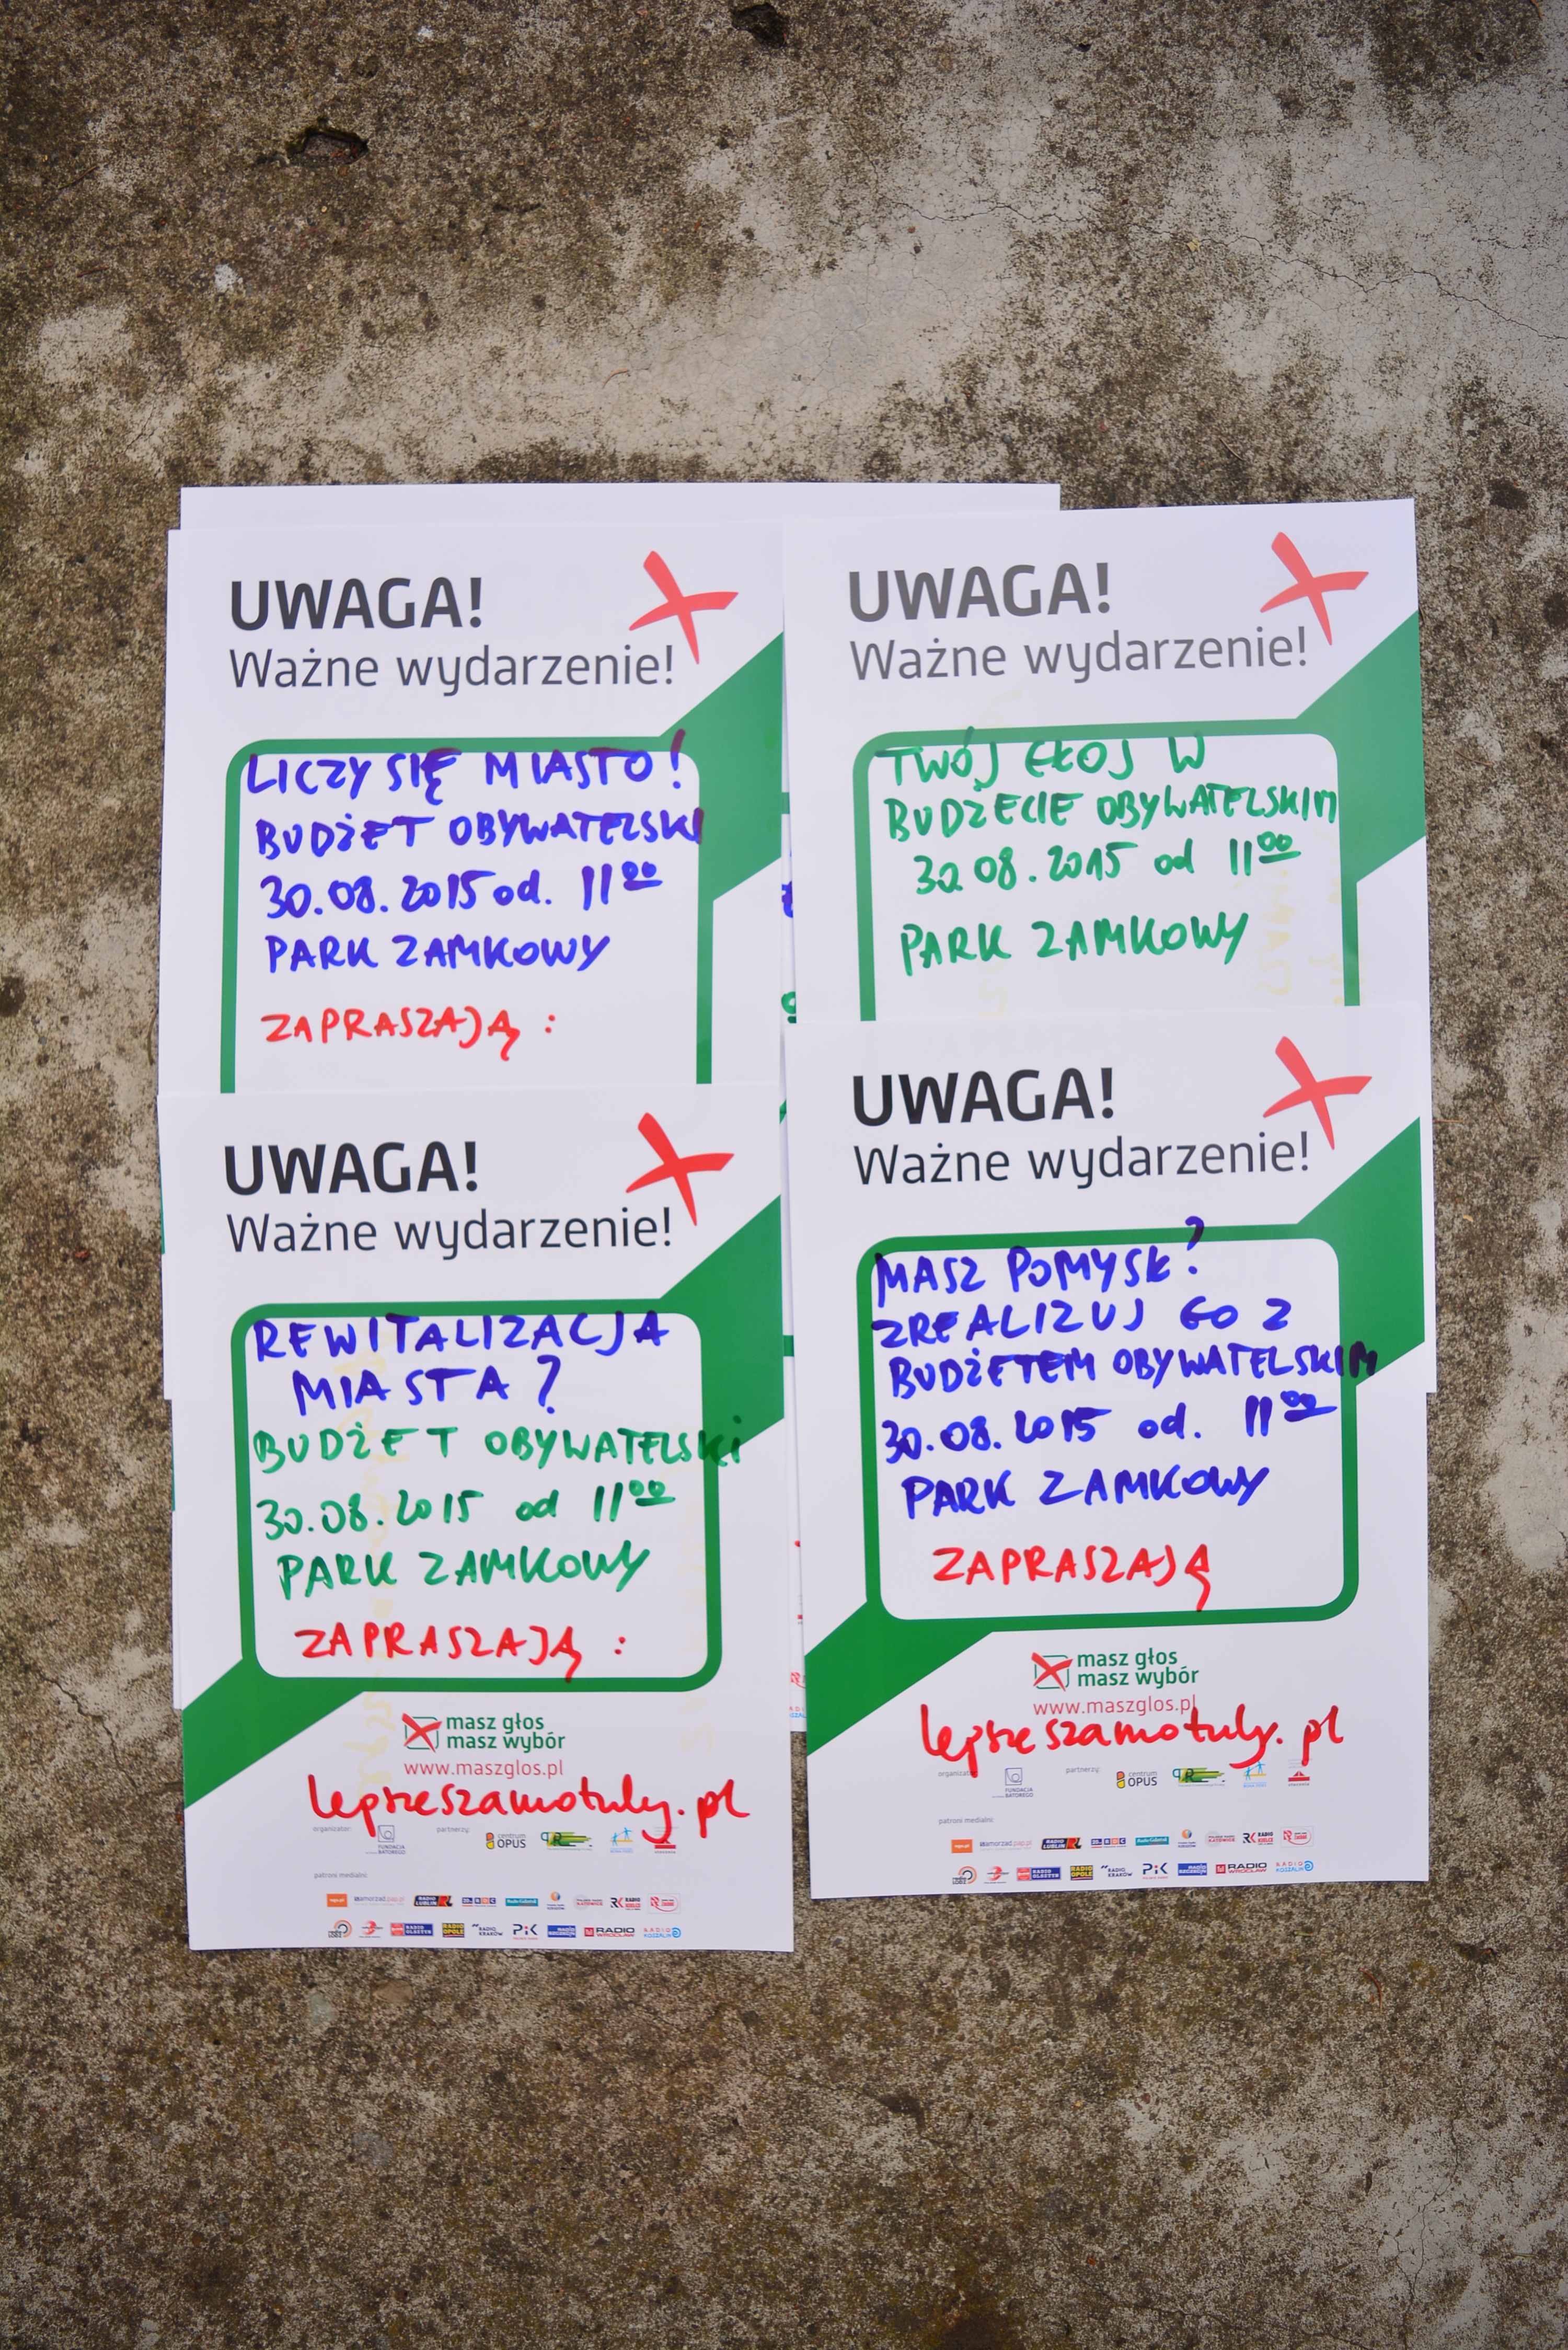 UWAGA!
Ważne wydarzenie!
LICZY SIĘ MIASTO!
BUDŻET OBYWATELSKI
30.08.2015 od. 11 00
PARK ZAMKOWY
ZAPRASZAJĄ :
UWAGA!
Ważne wydarzenie!
TWÓJ GŁOS W
BUDŻECIE OBYWATELSKIM
30.08.2015 od 11 00
PARK ZAMKOWY
UWAGA!
Ważne wydarzenie!
REWITALIZACJA
MIASTA?
BUDŻET OBYWATELSKI
30.08.2015 od 11 00
PARK ZAMKOWY
ZAPRASZAJĄ :
masz głos
masz wybór
www.maszglos.pl
lepszeszamotuly.pl
organizator:
partnerzy:
FUNDACJA
BATOREGO
centrum
OPUS
patroni medialni:
RADIO
OPOLE
RADIO
KRAKÓW
PiK
RADIO
WROCŁAW
RADIO
KOSZALIN
UWAGA!
Ważne wydarzenie!
MASZ POMYSŁ?
ZREALIZUJ GO Z
BUDŻETEM OBYWATELSKIM
30.08.2015 od. 11 00
PARK ZAMKOWY
ZAPRASZAJĄ
masz głos
masz wybór
www.maszglos.pl
lepszeszamotuly.pl
organizator:
partnerzy:
FUNDACJA
BATOREGO
centrum
OPUS
patroni medialni:
RADIO
LUBLIN
RADIO
OLSZTYN
RADIO
OPOLE
RADIO
KRAKÓW
PiK
RADIO
WROCŁAW
RADIO
KOSZALIN